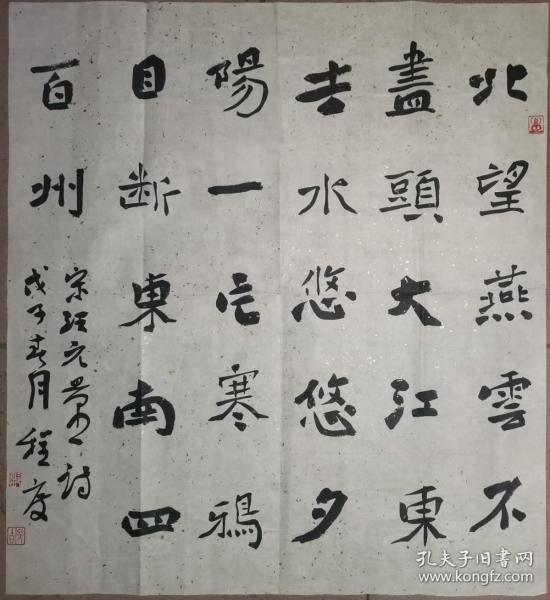 北望燕雲不
盡頭大江東
去水悠悠夕
陽一片寒鴉
目斷東南四
百州
宋汪元量一詩
戊子春月 程度
孔夫子旧书网
www.kongfz.com